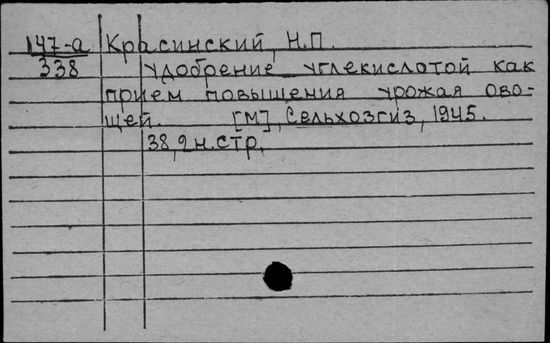 147-а Красинский, Н.П.
338 Удобрение углекислотой как
прием повышения урожая ово-
щей. [М], Сельхозгиз, 1945.
38,2н.стр.